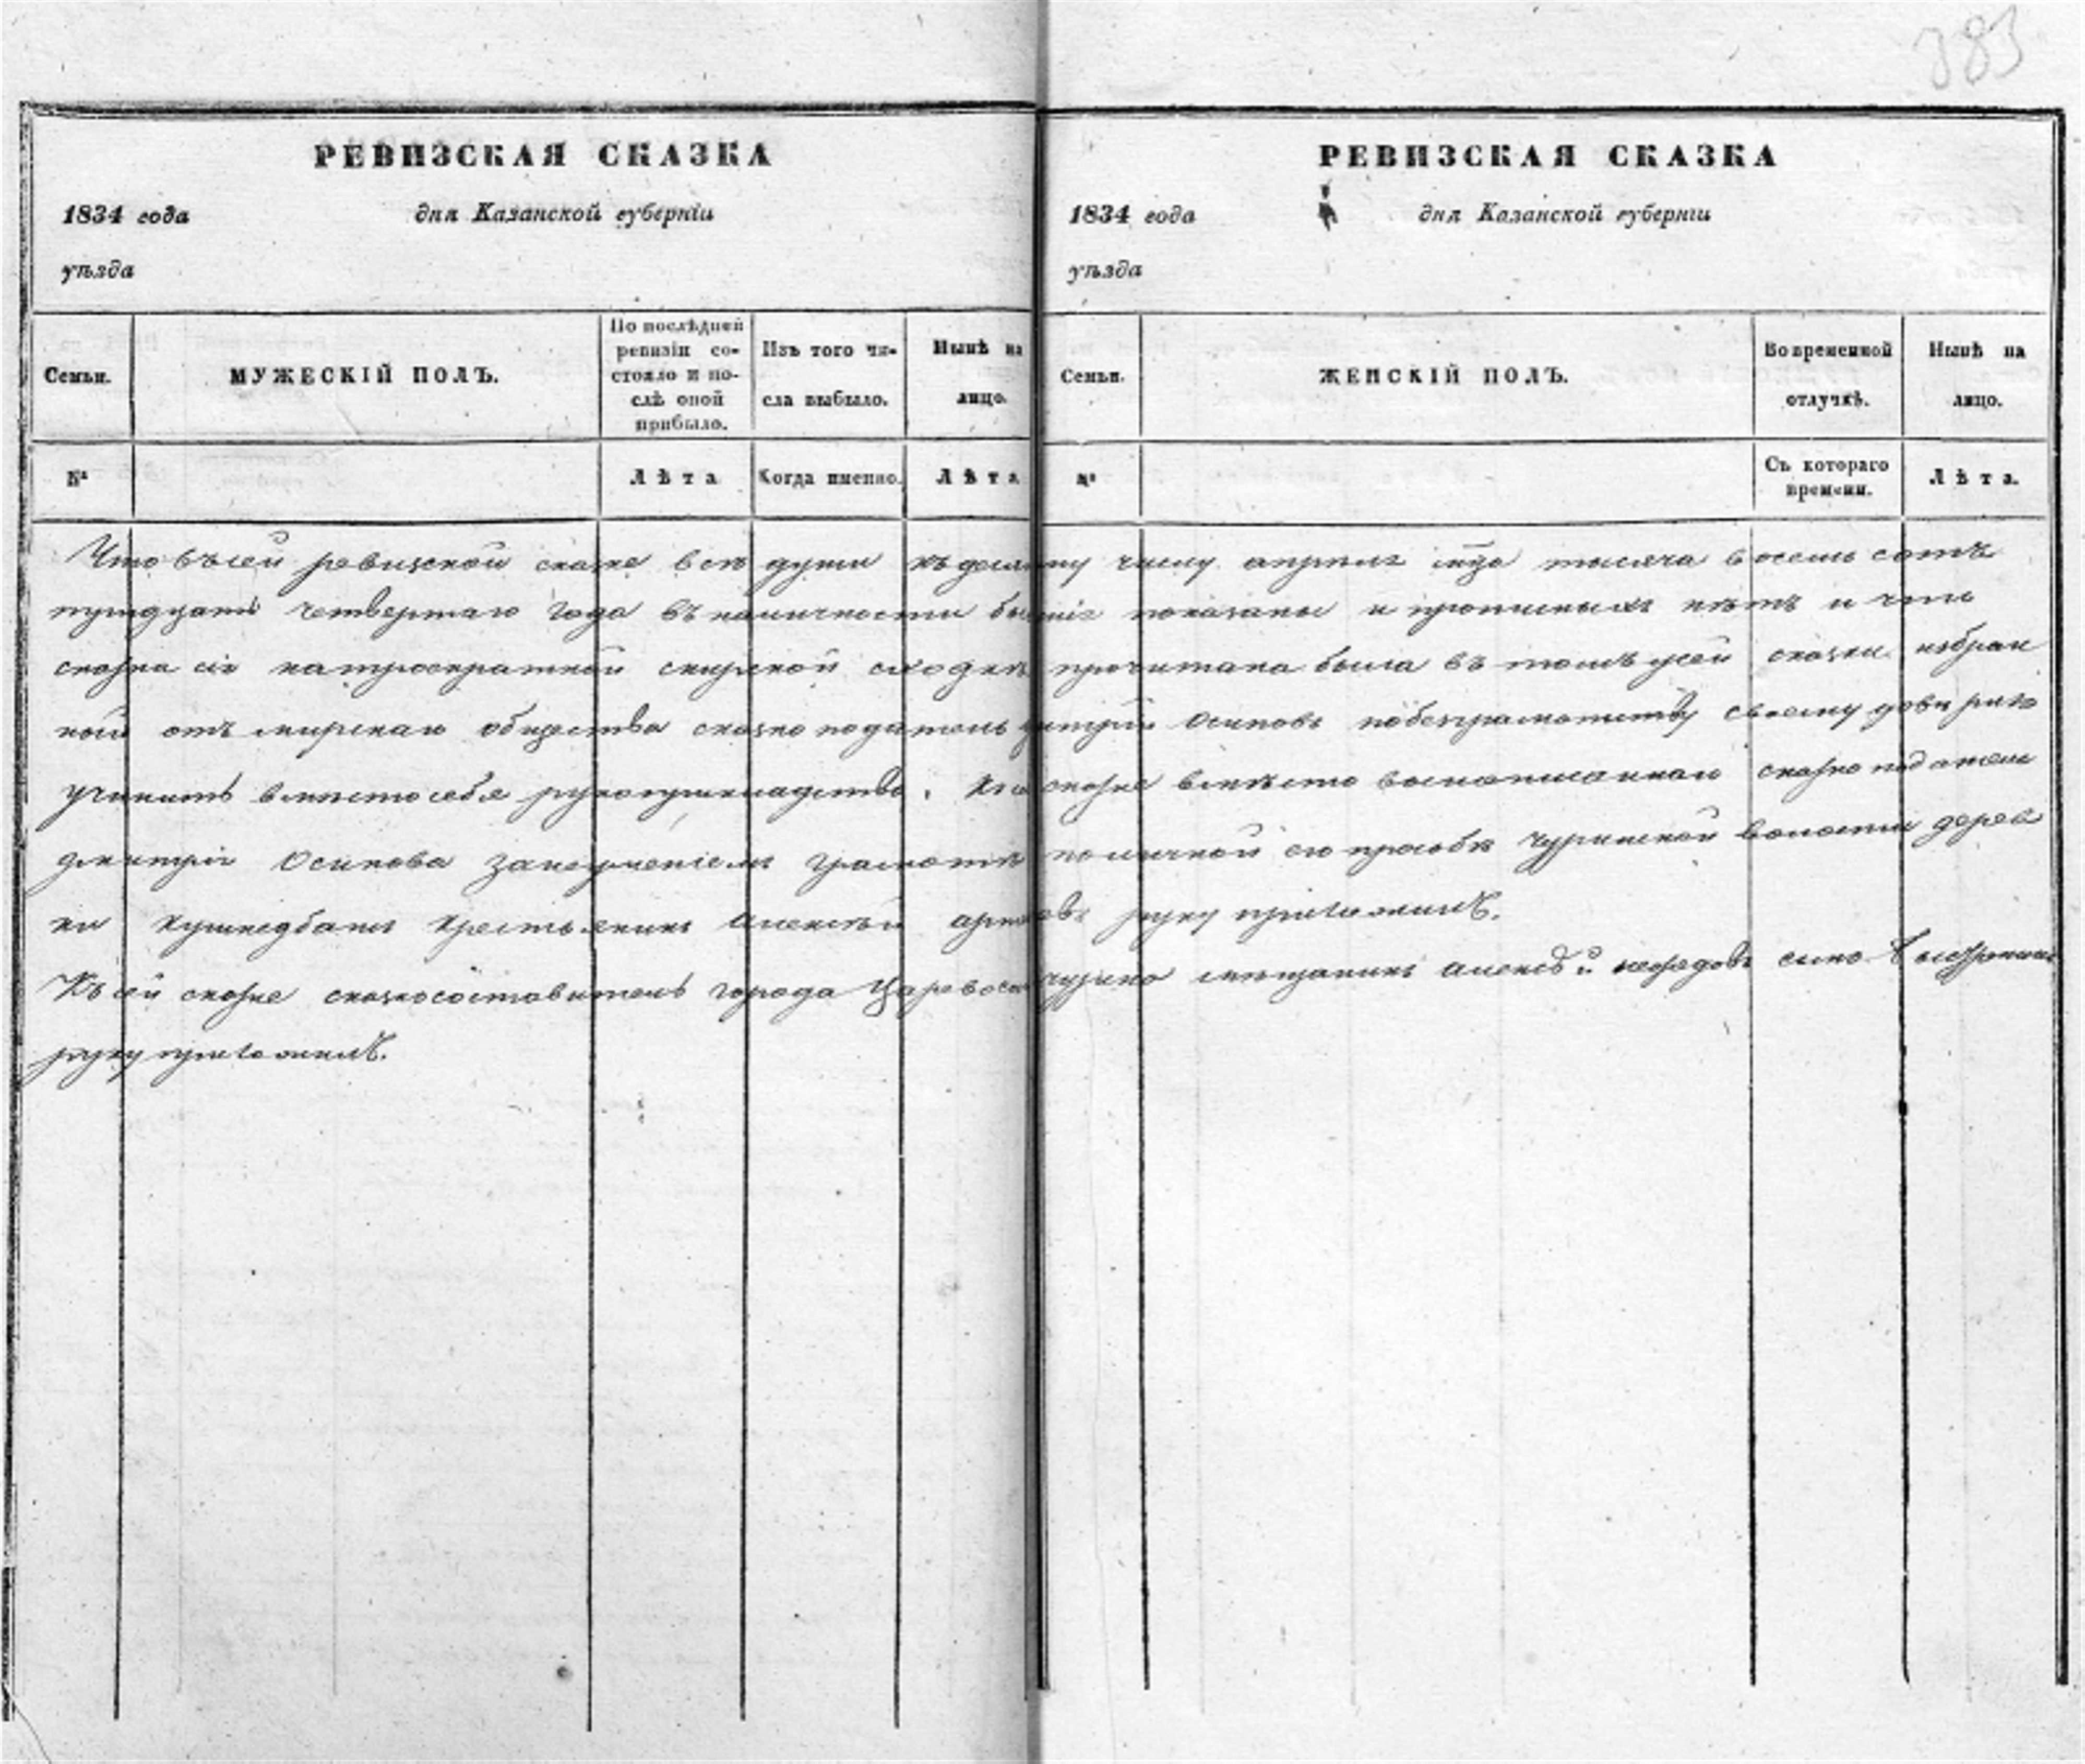 383
РЕВИЗСКАЯ СКАЗКА
1834 года дня Казанской губерніи
уѣзда
Семьи.
МУЖЕСКІЙ ПОЛЪ.
По послѣдней ревизіи со-
стояло и по-
слѣ оной
прибыло.
Изъ того чи-
сла выбыло.
Нынѣ на
лицо.
№
Лѣта
Когда именно.
Лѣта
РЕВИЗСКАЯ СКАЗКА
1834 года дня Казанской губерніи
уѣзда
Семьи.
ЖЕНСКІЙ ПОЛЪ.
Во временной
отлучкѣ.
Нынѣ на
лицо.
№
Съ котораго
времени.
Лѣта.
Что въ сей ревизской сказке все души къ числу апреля мца тысяча восемь сотъ
тридцать четвертаго года въ наличности показаны и прописныхъ нетъ и что
сказка сія на троекратной мирской сходке прочитана была въ томъ сей сказки избран
ной отъ мирскаго общества сказкоподатель Дмитрій Осиповъ по безграмотству своему доверию
учинить вместо себя рукоприкладство. сказке вместо сказкоподателя
Дмитрія Осипова за неумениемъ грамоте по личной его прозьбе Чуринской волости дерев
ни крестьянинъ Алексей руку приложилъ.
Къ сей сказке сказкосоставитель города Царевосанчурска мещанинъ Алексей сынъ
руку приложилъ.